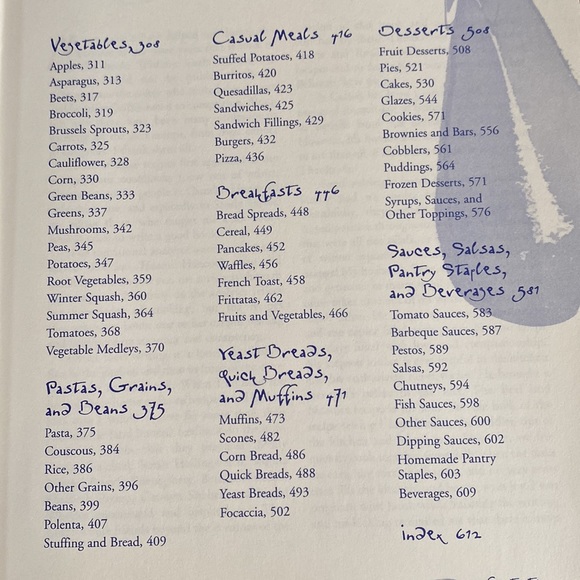 Vegetables, 308
Apples, 311
Asparagus, 313
Beets, 317
Broccoli, 319
Brussels Sprouts, 323
Carrots, 325
Cauliflower, 328
Corn, 330
Green Beans, 333
Greens, 337
Mushrooms, 342
Peas, 345
Potatoes, 347
Root Vegetables, 359
Winter Squash, 360
Summer Squash, 364
Tomatoes, 368
Vegetable Medleys, 370
Pastas, Grains,
and Beans 375
Pasta, 375
Couscous, 384
Rice, 386
Other Grains, 396
Beans, 399
Polenta, 407
Stuffing and Bread, 409
Casual Meals 416
Stuffed Potatoes, 418
Burritos, 420
Quesadillas, 423
Sandwiches, 425
Sandwich Fillings, 429
Burgers, 432
Pizza, 436
Breakfasts 446
Bread Spreads, 448
Cereal, 449
Pancakes, 452
Waffles, 456
French Toast, 458
Frittatas, 462
Fruits and Vegetables, 466
Yeast Breads,
Quick Breads,
and Muffins 471
Muffins, 473
Scones, 482
Corn Bread, 486
Quick Breads, 488
Yeast Breads, 493
Focaccia, 502
Desserts 508
Fruit Desserts, 508
Pies, 521
Cakes, 530
Glazes, 544
Cookies, 571
Brownies and Bars, 556
Cobblers, 561
Puddings, 564
Frozen Desserts, 571
Syrups, Sauces, and
Other Toppings, 576
Sauces, Salsas,
Pantry Staples,
and Beverages 581
Tomato Sauces, 583
Barbeque Sauces, 587
Pestos, 589
Salsas, 592
Chutneys, 594
Fish Sauces, 598
Other Sauces, 600
Dipping Sauces, 602
Homemade Pantry
Staples, 603
Beverages, 609
index 612